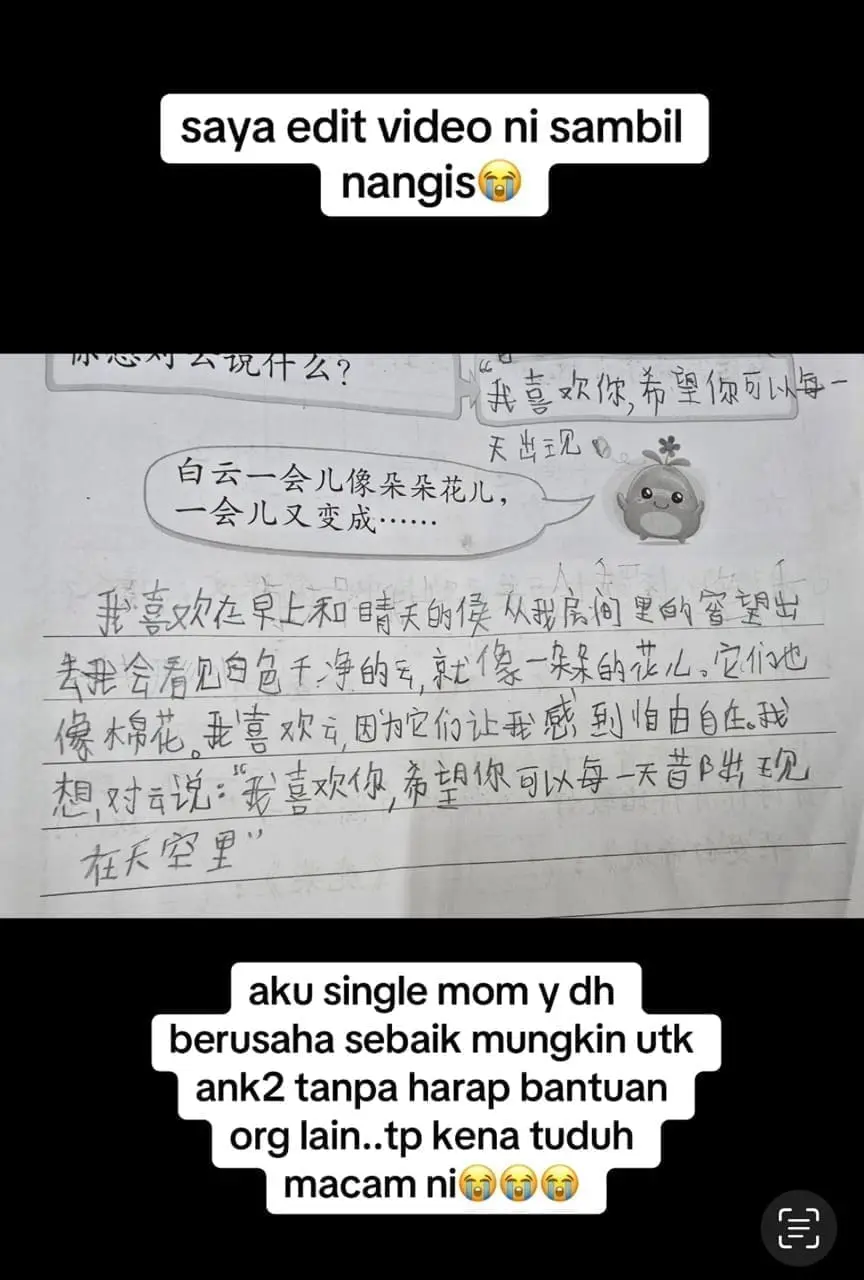 saya edit video ni sambil
nangis😭
你想对云说什么?
“我喜欢你,希望你可以每一
天出现
白云一会儿像朵朵花儿,
一会儿又变成……
我喜欢在早上和晴天的侯从我房间里的窗望出
去我会看见白色干净的云,就像一朵朵的花儿。它们也
像棉花。我喜欢云,因为它们让我感到自由自在。我
想,对云说:“我喜欢你,希望你可以每一天昔阝出现
在天空里”
aku single mom y dh
berusaha sebaik mungkin utk
ank2 tanpa harap bantuan
org lain..tp kena tuduh
macam ni😭😭😭